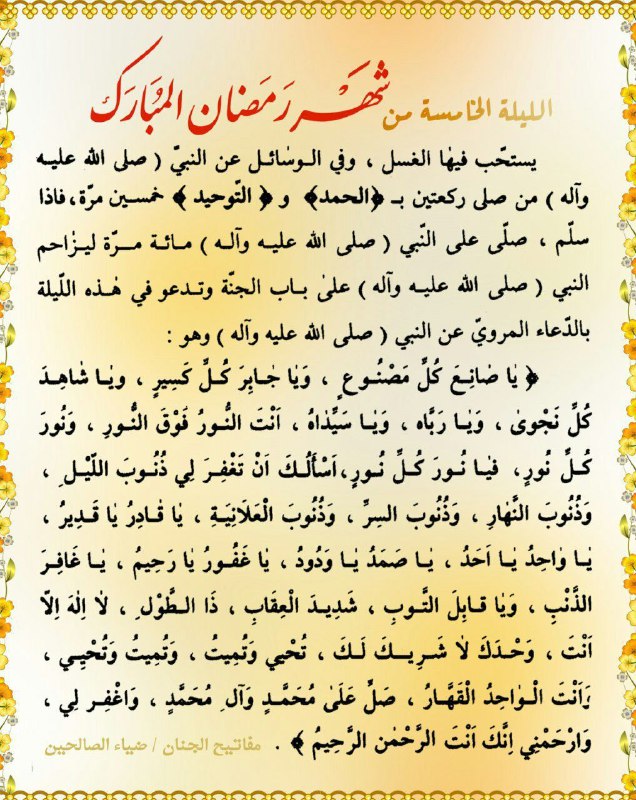 الليلة الخامسة من شهر رمضان المبارك
يستحّب فيها الغسل ، وفي الوسائل عن النبيّ ( صلى الله عليه
وآله ) من صلى ركعتين بـ ﴿الحمد﴾ و ﴿ التّوحيد ﴾ خمسين مرّة ، فاذا
سلّم ، صلّى على النّبي ( صلى الله عليه وآله ) مائة مرّة ليزاحم
النبي ( صلى الله عليه وآله ) على باب الجنّة وتدعو في هذه اللّيلة
بالدّعاء المرويّ عن النبي ( صلى الله عليه وآله ) وهو :
﴿ يٰا صٰانِعَ كُلِّ مَصْنُوعٍ ، وَيٰا جٰابِرَ كُلِّ كَسِيرٍ ، ويٰا شٰاهِدَ
كُلِّ نَجْوىٰ ، وَيٰا رَبّٰاه ، وَيٰا سَيِّدٰاهُ ، اَنْتَ النُّورُ فَوْقَ النُّورِ ، وَنُورَ
كُلِّ نُورٍ، فيٰا نُورَ كُلِّ نُورٍ، اَسْأَلُكَ اَنْ تَغْفِرَ لِي ذُنُوبَ اللّيْلِ ،
وَذُنُوبَ النَّهٰارِ ، وَذُنُوبَ السِرِّ ، وَذُنُوبَ الْعَلاَنِيَةِ ، يٰا قٰادِرُ يٰا قَدِيرُ ،
يٰا وٰاحِدُ يٰا اَحَدُ ، يٰا صَمَدُ يٰا وَدُودُ ، يٰا غَفُورُ يٰا رَحِيمُ ، يٰا غٰافِرَ
الذَّنْبِ ، وَيٰا قٰابِلَ التَّوبِ ، شَدِيدَ الْعِقٰابِ ، ذَا الطَّوْلِ ، لاٰ اِلٰهَ اِلاّ
اَنْتَ ، وَحْدَكَ لاٰ شَرِيكَ لَكَ ، تُحْيي وَتُمِيتُ ، وَتُمِيتُ وَتُحْيِي ،
وَاَنْتَ الْوٰاحِدُ الْقَهّٰارُ ، صَلِّ عَلَىٰ مُحَمَّدٍ وَآلِ مُحَمَّدٍ ، وَاغْفِر لِي ،
وَارْحَمْنِي اِنَّكَ اَنْتَ الرَّحْمٰنِ الرَّحِيمُ ﴾ . مفاتيح الجنان / ضياء الصالحين